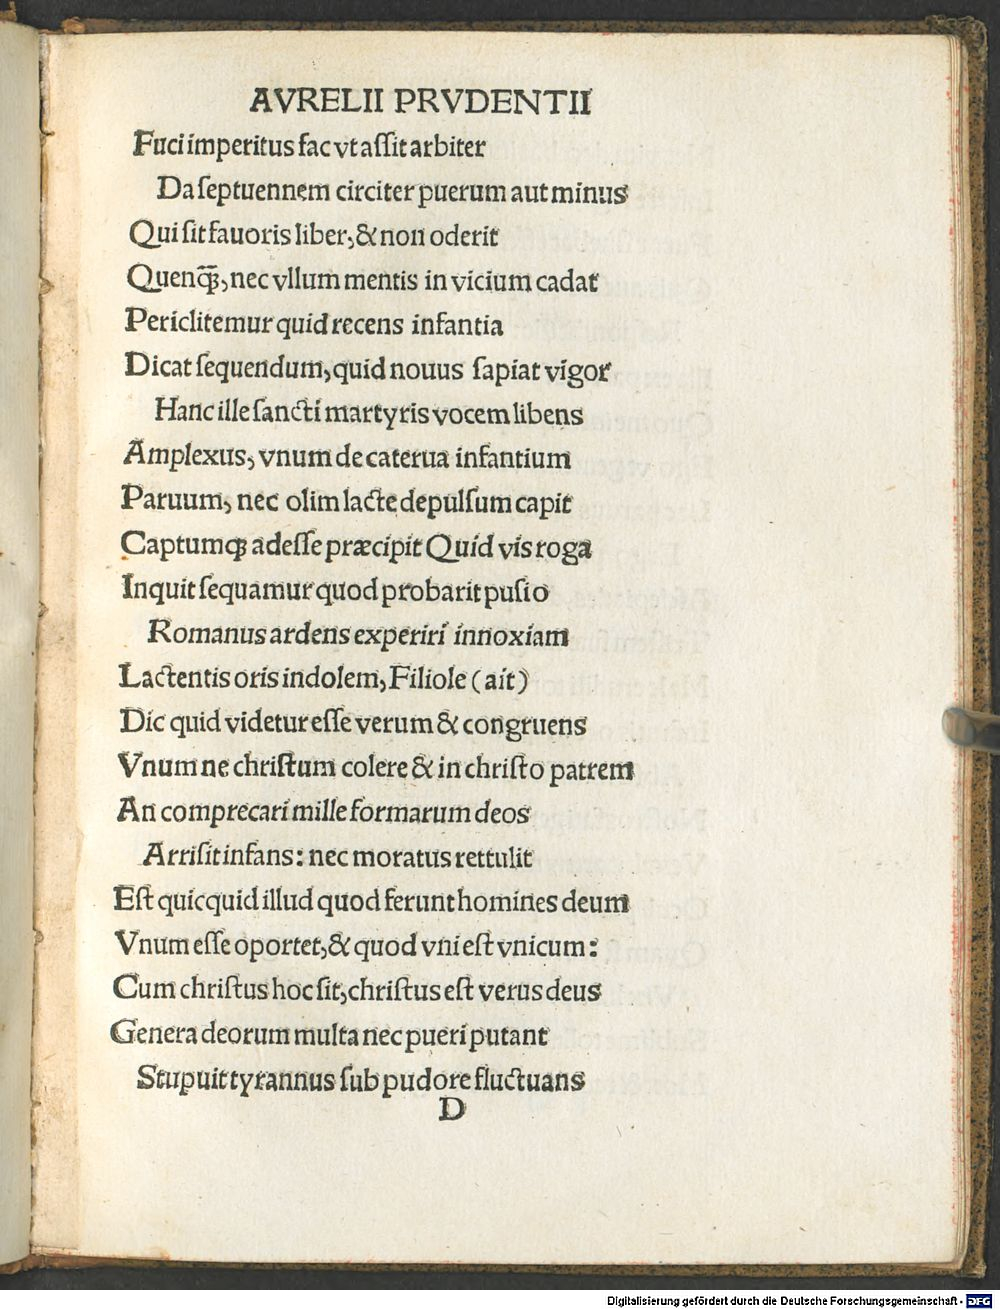 AVRELII PRVDENTII
Fuci imperitus fac vt aſſit arbiter
Da ſeptuennem circiter puerum aut minus
Qui ſit fauoris liber, & non oderit
Quenq̃, nec vllum mentis in vicium cadat
Periclitemur quid recens infantia
Dicat ſequendum, quid nouus ſapiat vigor
Hanc ille ſancti martyris vocem libens
Amplexus, vnum de caterua infantium
Paruum, nec olim lacte depulſum capit
Captumqꝫ adeſſe præcipit Quid vis roga
Inquit ſequamur quod probarit puſio
Romanus ardens experiri innoxiam
Lactentis oris indolem, Filiole (ait)
Dic quid videtur eſſe verum & congruens
Vnum ne chriſtum colere & in chriſto patrem
An comprecari mille formarum deos
Arriſit infans: nec moratus rettulit
Eſt quicquid illud quod ferunt homines deum
Vnum eſſe oportet, & quod vni eſt vnicum:
Cum chriſtus hoc ſit, chriſtus eſt verus deus
Genera deorum multa nec pueri putant
Stupuit tyrannus ſub pudore fluctuans
D
Digitalisierung gefördert durch die Deutsche Forschungsgemeinschaft - DFG